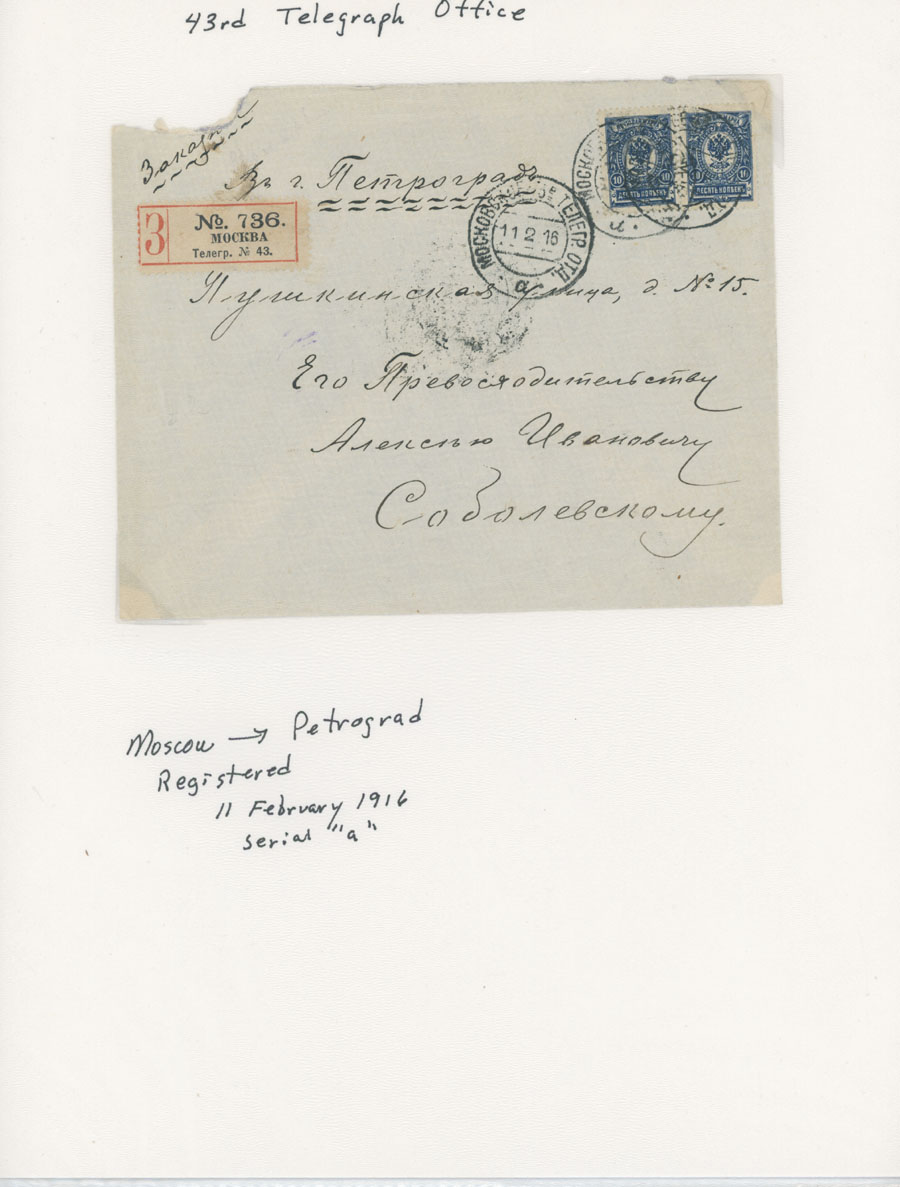 43rd Telegraph Office
Заказн
Въ г. Петроградъ
З
№. 736.
МОСКВА
Телегр. № 43.
11 2 16
ТЕЛЕГР. ОТД.
а
10 10
ДЕСЯТЬ КОПѢЕКЪ
10 10
ДЕСЯТЬ КОПѢЕКЪ
Пушкинская улица, д. № 15.
Его Превосходительству
Алексѣю Ивановичу
Соболевскому.
Moscow → Petrograd
Registered
11 February 1916
serial "a"